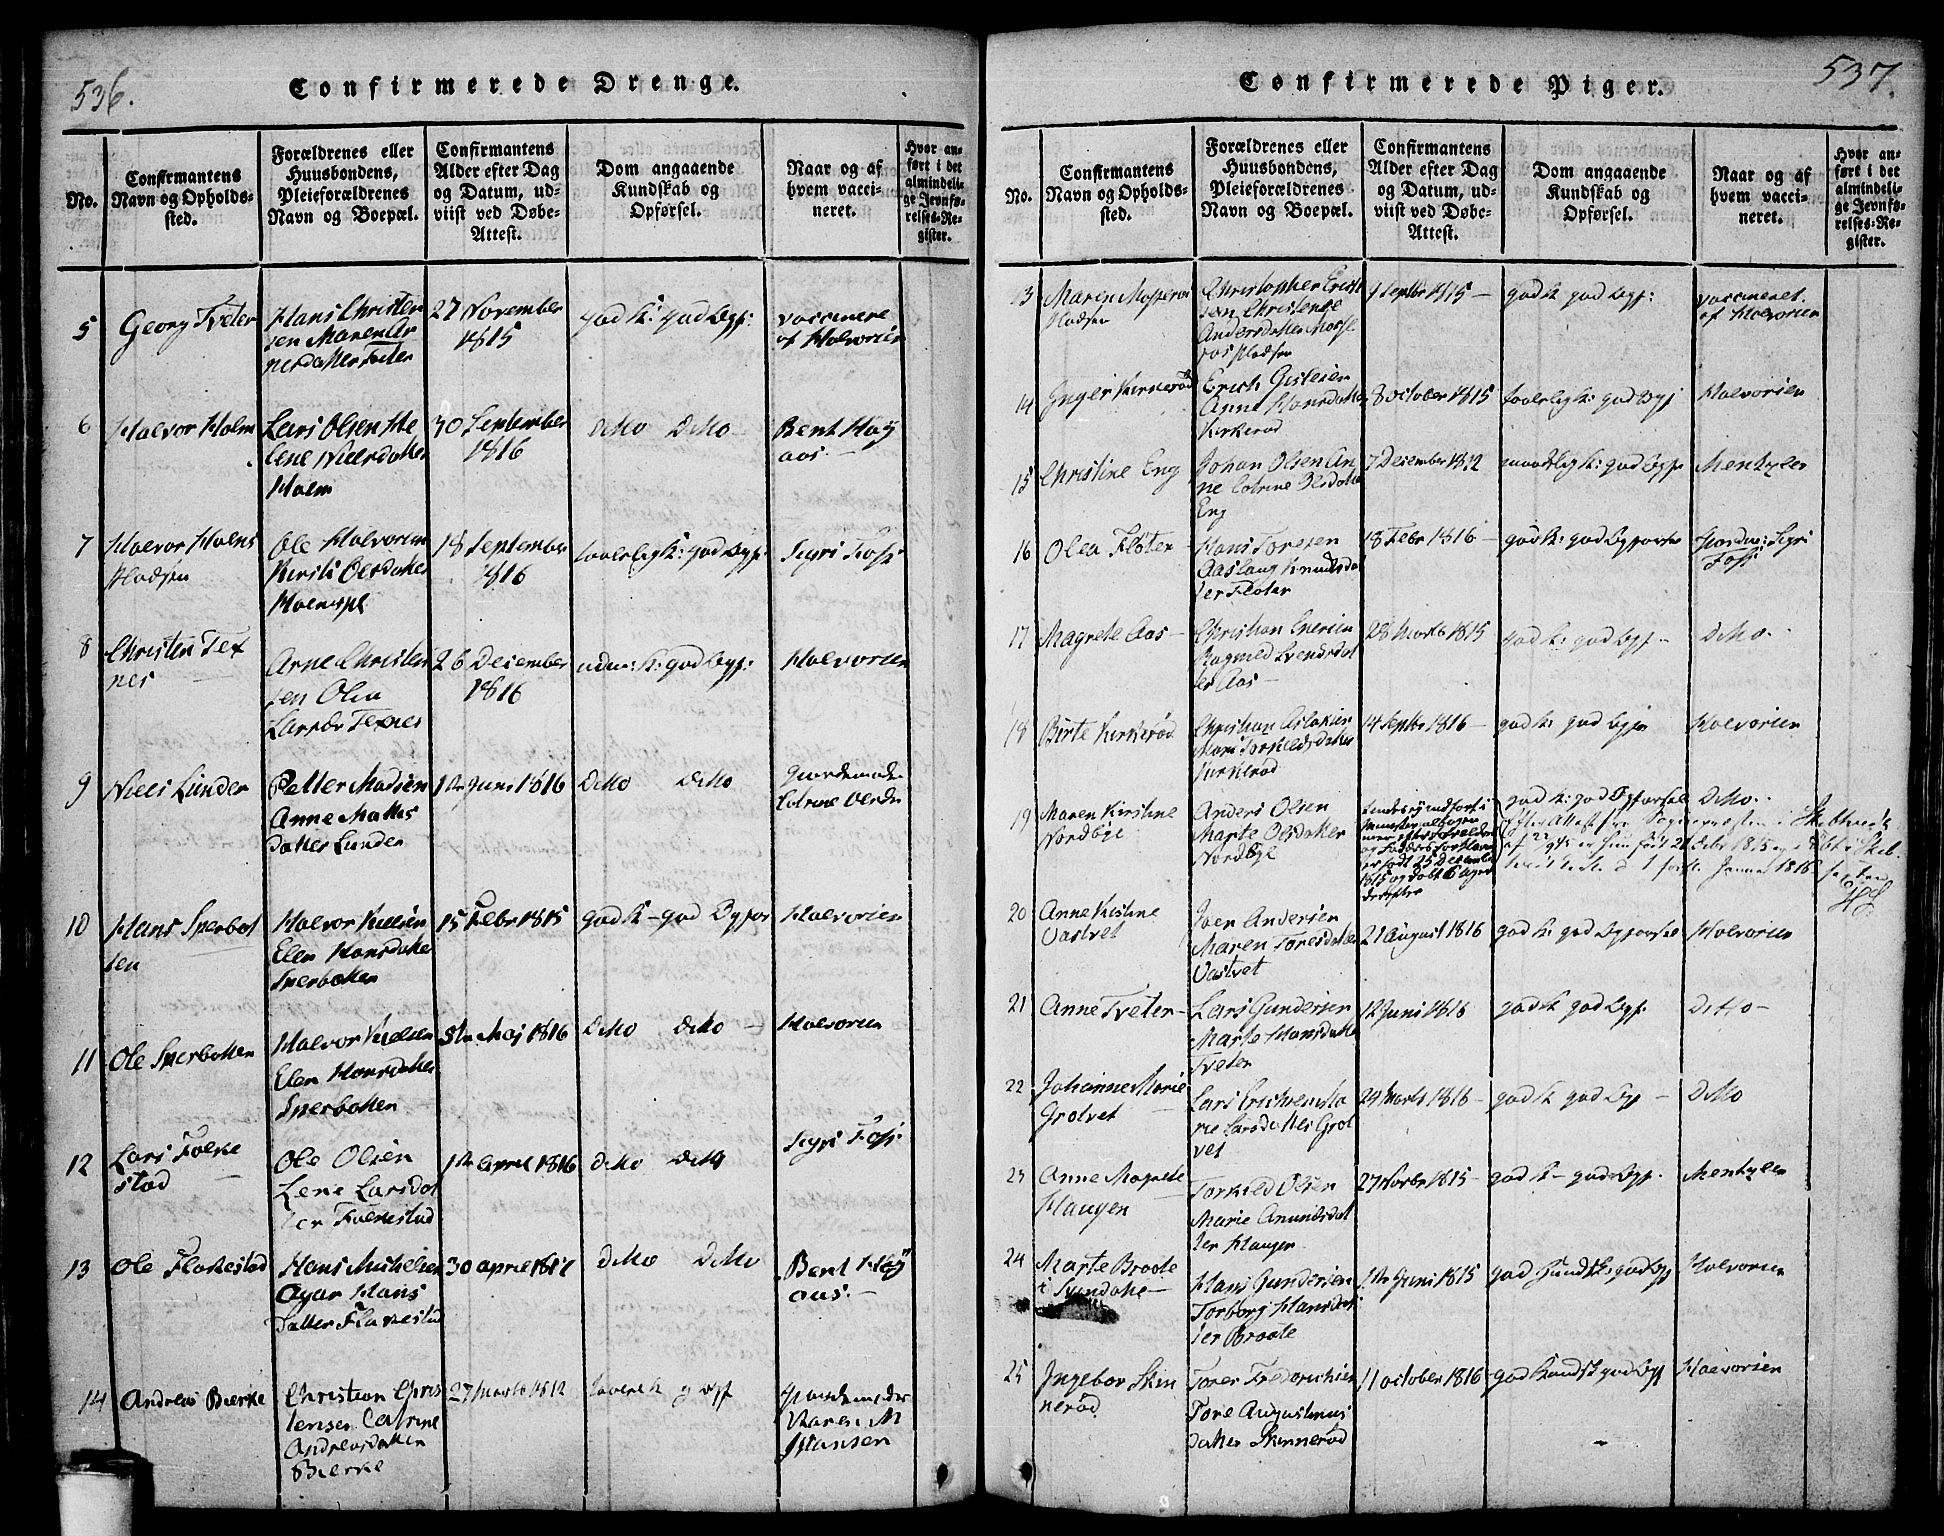 536.
Confirmerede Drenge.
No.
Confirmantens
Navn og Opholds-
sted.
Forældrenes eller
Huusbondens,
Pleieforældrenes
Navn og Boepæl.
Confirmantens
Alder efter Dag
og Datum, ud-
viist ved Døbe-
Attest.
Dom angaaende
Kundskab og
Opførsel.
Naar og af
hvem vacci-
neret.
Hvor an-
ført i det
almindeli-
ge Jevnfø-
relses-Re-
gister.
5
Georg Tveter
Hans Christen
sen Maren
Tveter
27 November
1815
god K: god Opf:
vaccinere
af Halvorsen
6
Halvor Holm
Lars Olsen He
lene Nielsdatter
Holm
30 September
1816
ditto ditto
Bent Høy
aas.
7
Halvor Holms
Pladsen
Ole Halvorsen
Kirsti Olsdatter
Holmspl
18 September
1816
taalelig K: god Opf:
Sigri Foss
8
Christen Tex
nes
Arne Christen
sen Olea
Larsdr Texnes
26 December
1816
K: god Opf:
Halvorsen
9
Niels Lunder
Petter Madsen
Anne Mattis
datter Lunder
1te Juni 1816
ditto ditto
Giordemoder
Cotrine Olsdr
10
Hans Sperbot
ten
Halvor Kielsen
Elen Hansdatter
Sperbotten
15 Febr 1815
god K god Opfør
Halvorsen
11
Ole Sperbotten
Halvor Kielsen
Elen Hansdatter
Sperbotten
5te Maj 1816
ditto ditto
Halvorsen
12
Lars Folke
stad
Ole Olsen
Lene Larsdat
ter Folkestad
1te April 1816
ditto ditto
Sigri Foss
13
Ole Flakestad
Hans Mikelsen
Agar Hans
datter Flakestad
30 april 1817
ditto ditto
Bent Høy
aas.
14
Andreas Bierke
Christian Chris
tensen Catrine
Andreasdatter
Bierke
27 Marts 1812
K g Opf
Giordemoder
Karen M
Hansen
537.
Confirmerede Piger.
No.
Confirmantens
Navn og Opholds-
sted.
Forældrenes eller
Huusbondens,
Pleieforældrenes
Navn og Boepæl.
Confirmantens
Alder efter Dag
og Datum, ud-
viist ved Døbe-
Attest.
Dom angaaende
Kundskab og
Opførsel.
Naar og af
hvem vacci-
neret.
Hvor an-
ført i det
almindeli-
ge Jevnfø-
relses-Re-
gister.
13
Maren
Pladsen
Christopher Erich
sen Christence
Andersdatter
Pladsen
1 Septbr 1815
god K god Opf:
vaccineret
af Halvorsen
14
Inger Kirkerød
Erich
Anne Hansdatter
Kirkerød
8 october 1815
taalelig K: god Opf
Halvorsen
15
Christine Eng
Johan Olsen An
ne Cotrine Olsdatter
Eng
7 December 1812
maadelig K: god Opf
Mentzler
16
Olea Fløter
Hans Toresen
Aaslaug Knudsdat
ter Fløter
18 Febr 1816
god K: god Opførsel
Giordm: Sigri
Foss
17
Magrete Aas
Christian Iversen
Ragnild Svendsdat
ter Aas
28 Marts 1815
god K: god Opf
Ditto
18
Birte Kirkerød
Christian Aslaksen
Mari Torkildsdatter
Kirkerød
14 Septbr 1816
god K: god Opf
Halvorsen
19
Maren Kirstine
Nordbye
Anders Olsen
Marte Olsdatter
Nordbye
født 25 Decembr
1815 og døbt 6 dager
derefter
god K: god Opførsel
Ditto
20
Anne Kistine
Vastvet
Joen Andersen
Maren Toresdatter
Vastvet
21 August 1816
god K: god Opførsel
Halvorsen
21
Anne Tveter
Lars Gundersen
Marte Hansdatter
Tveter
12 Juni 1816
god K god Opf:
Ditto
22
Johanne Marie
Grotvet
Lars Erichsen Ma
rie Larsdatter Grot
vet
24 Marts 1816
god K god Opf
Ditto
23
Anne Magrete
Haugen
Torkild Olsen
Marie Amundsdat
ter Haugen
27 Novbr 1815
god K god Opf.
Mentzler
24
Marte Braate
i
Hans Gundersen
Torborg Hansdat
ter Braate
1te Juni 1815
god Kundsk: god Opf
Halvorsen
25
Ingebor Skin
nerød
Torer Fredrichsen
Tore Augustinus
datter Skinnerød
11 october 1816
god Kundsk god Opf
Halvorsen